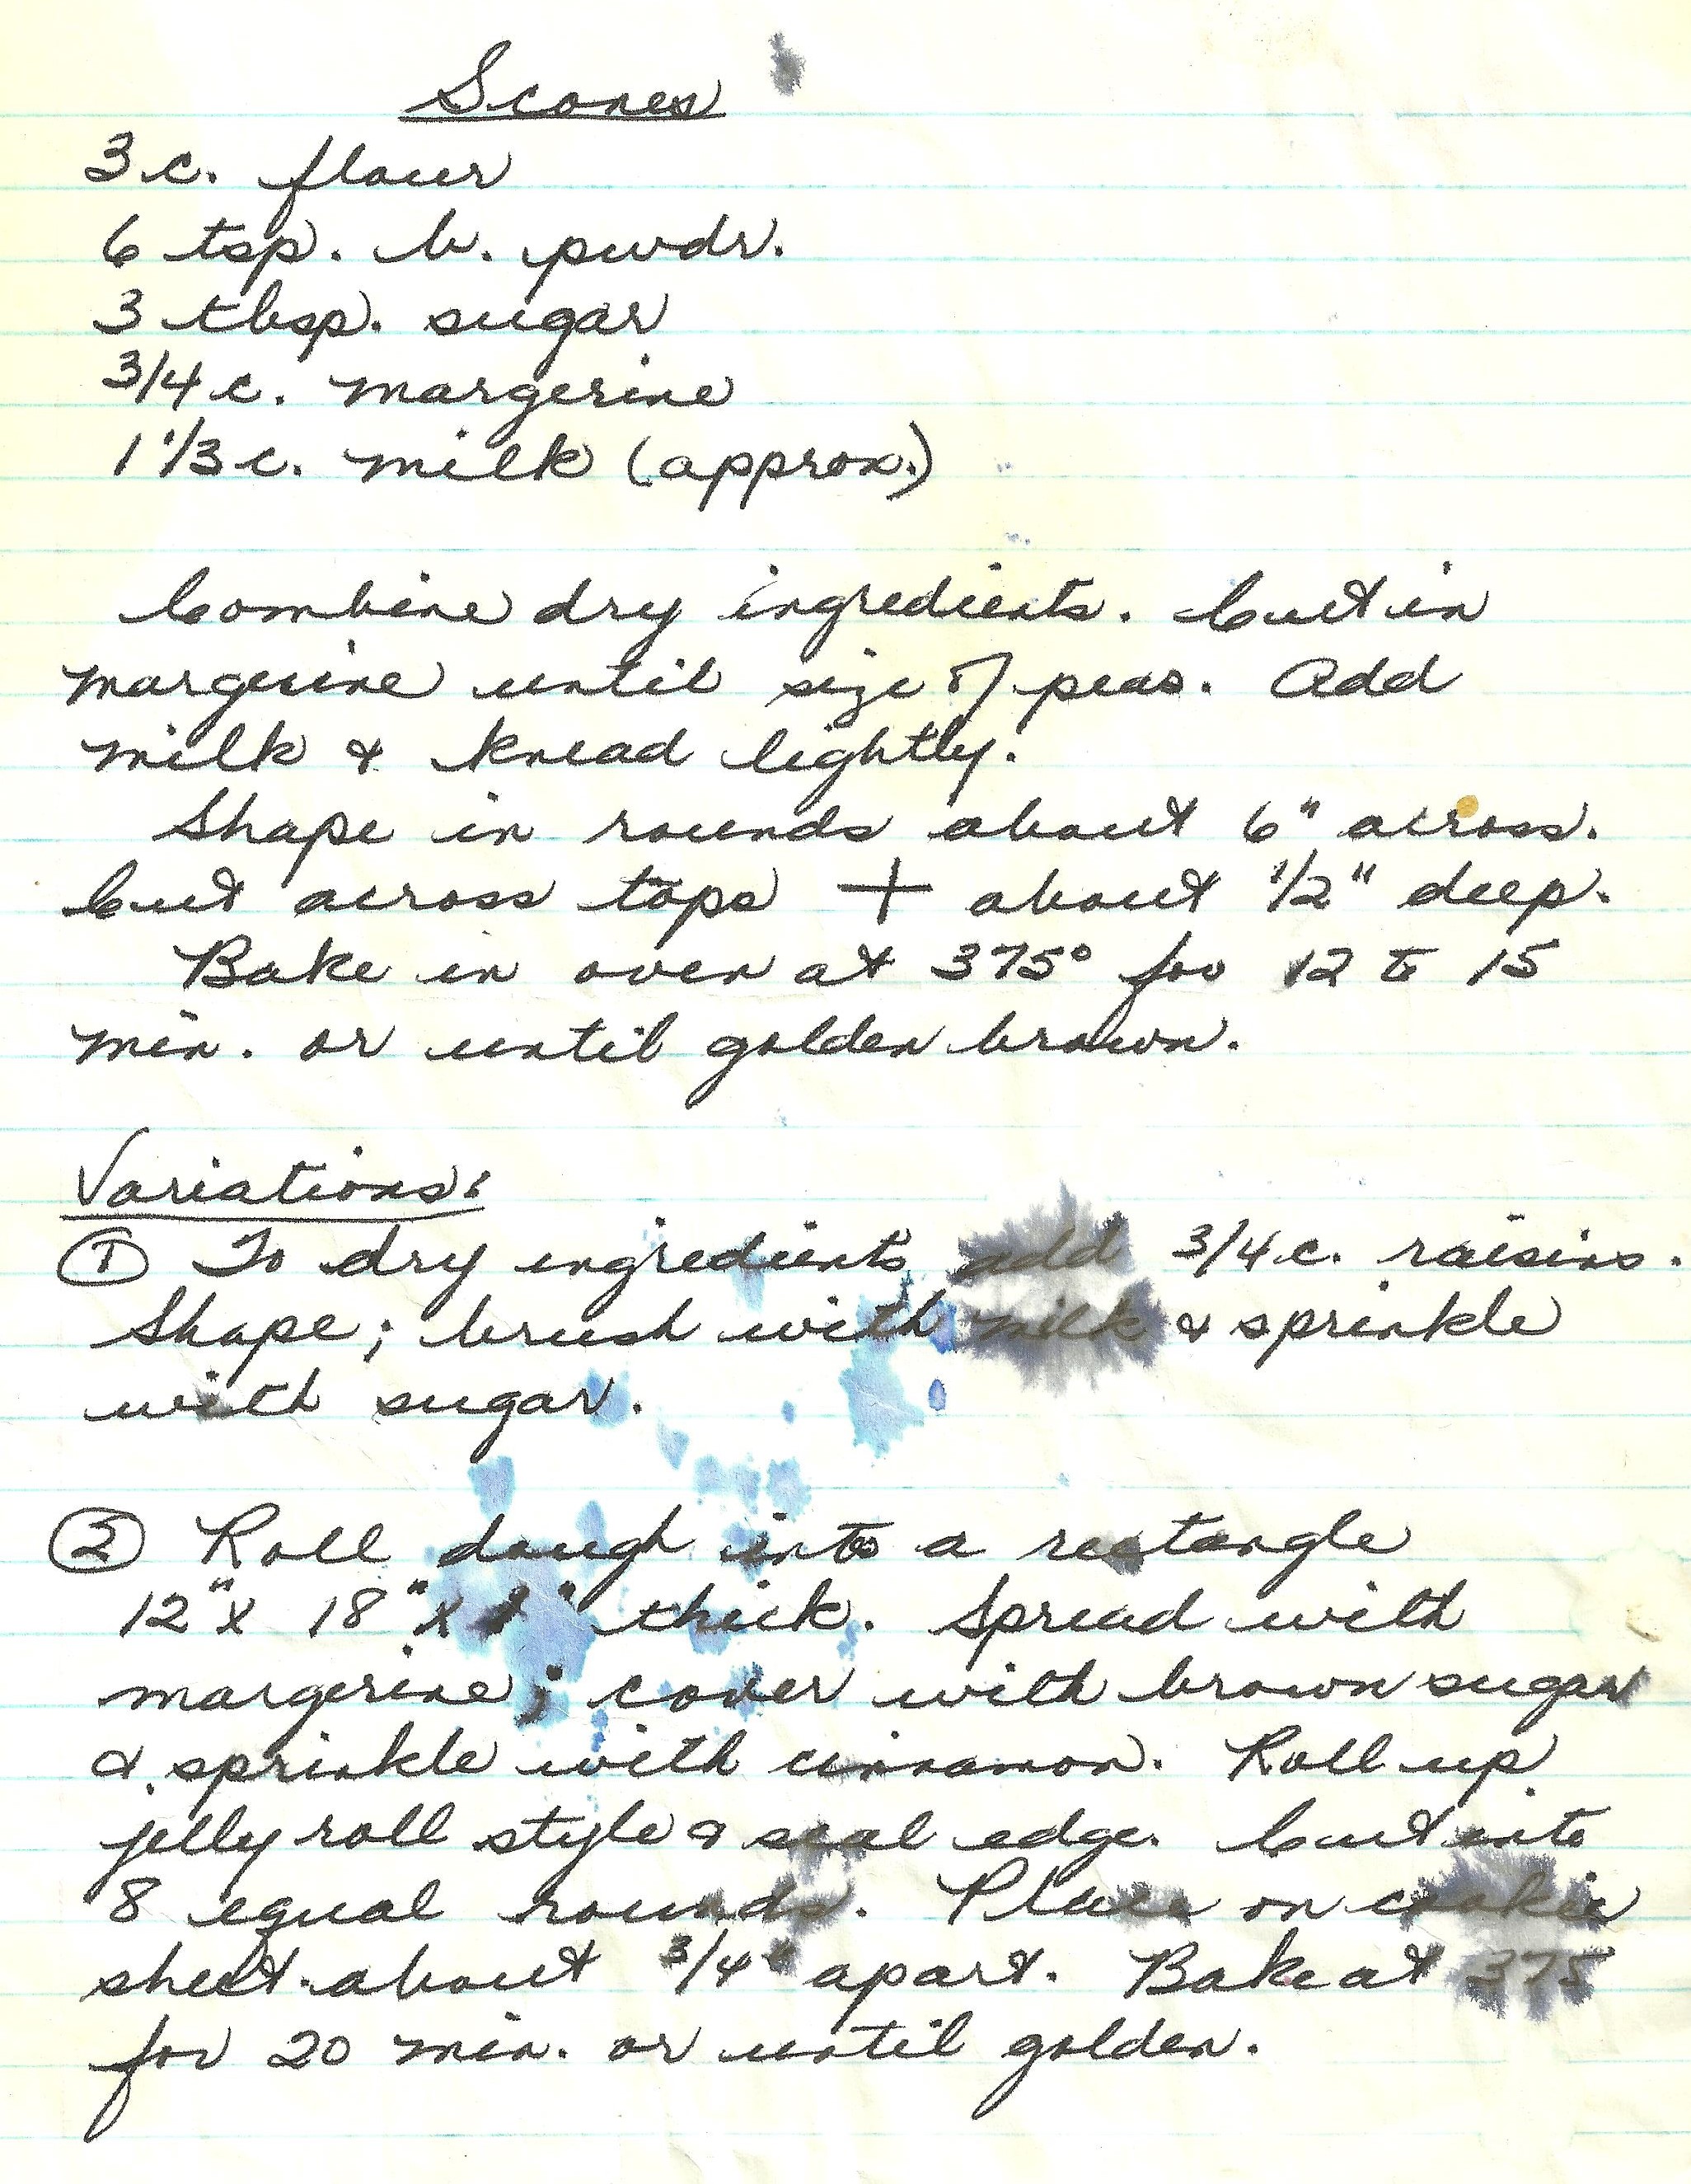 Scones
3 c. flour
6 tsp. b. pwdr.
3 tbsp. sugar
3/4 c. margerine
1 1/3 c. milk (approx.)
Combine dry ingredients. Cut in
margerine until size of peas. Add
milk & knead lightly.
Shape in rounds about 6" across.
Cut across tops + about 1/2" deep.
Bake in oven at 375° for 12 to 15
min. or until golden brown.
Variations:
① To dry ingredients add 3/4 c. raisins.
Shape; brush with milk & sprinkle
with sugar.
② Roll dough into a rectangle
12" x 18" x " thick. Spread with
margerine; cover with brown sugar
& sprinkle with cinnamon. Roll up
jelly roll style & seal edge. Cut into
8 equal rounds. Place on cookie
sheet about 3/4" apart. Bake at 375
for 20 min. or until golden.